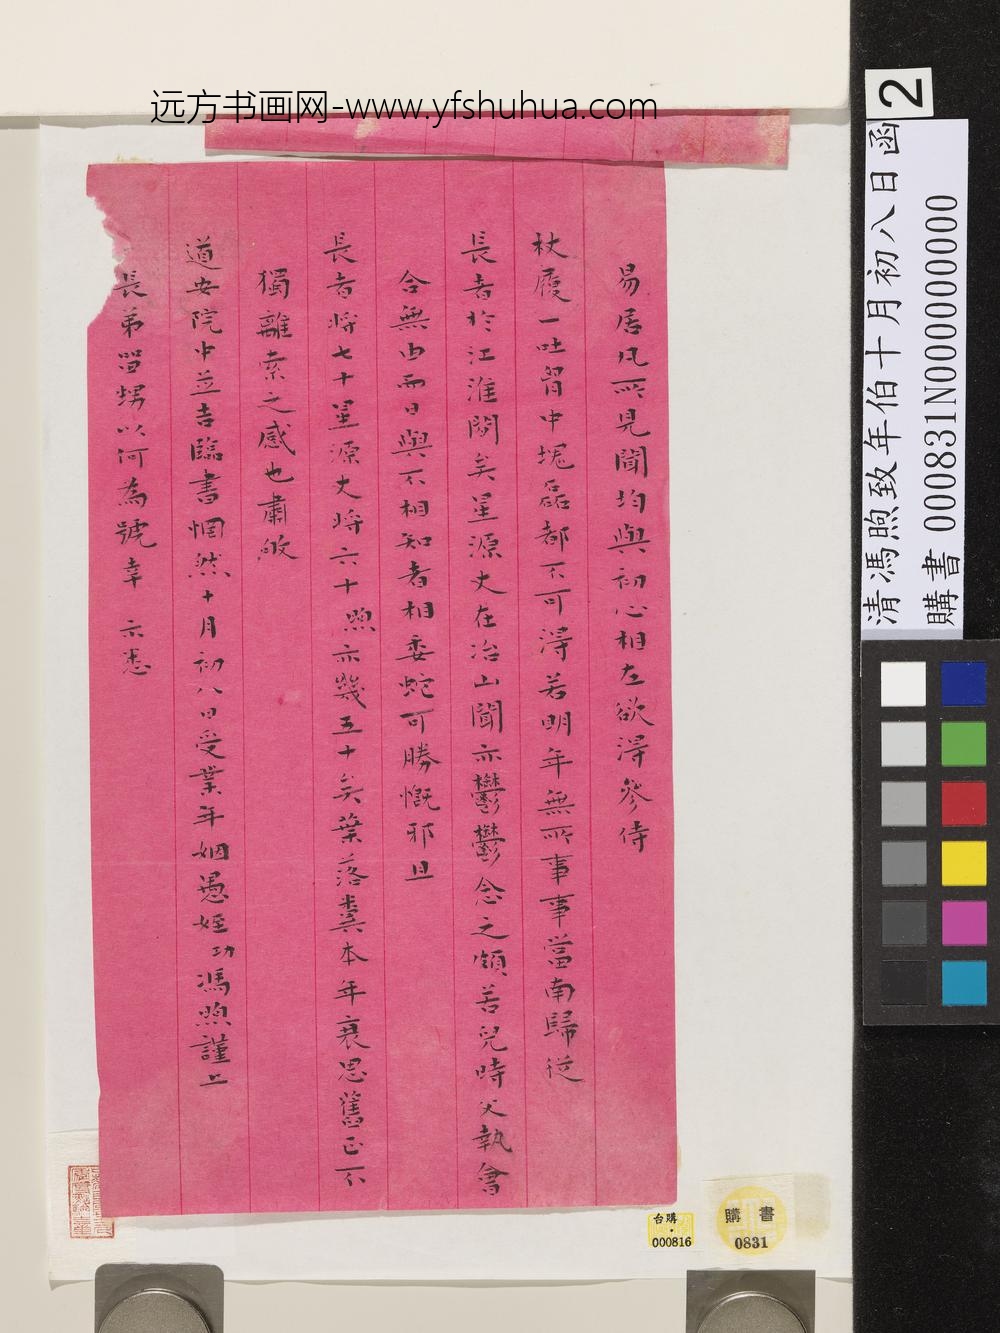 远方书画网-www.yfshuhua.com
易居凡所見聞均與初心相左欲得參侍
杖履一吐胷中塊磊都不可得若明年無所事事當南歸從
長者於江淮間矣星源丈在冶山聞亦鬱鬱念之頗苦兒時父執會
合無由而日與不相知者相委蛇可勝慨邪且
長者將七十星源丈將六十煦亦幾五十矣葉落糞本年衰思舊正不
獨離索之感也肅敂
道安院中並吉臨書惘然十月初八日受業年姻愚姪功馮煦謹上
長弟甥以何為號幸示悉
2
清馮煦致年伯十月初八日函
購書000831N000000000
台購
000816
購書
0831